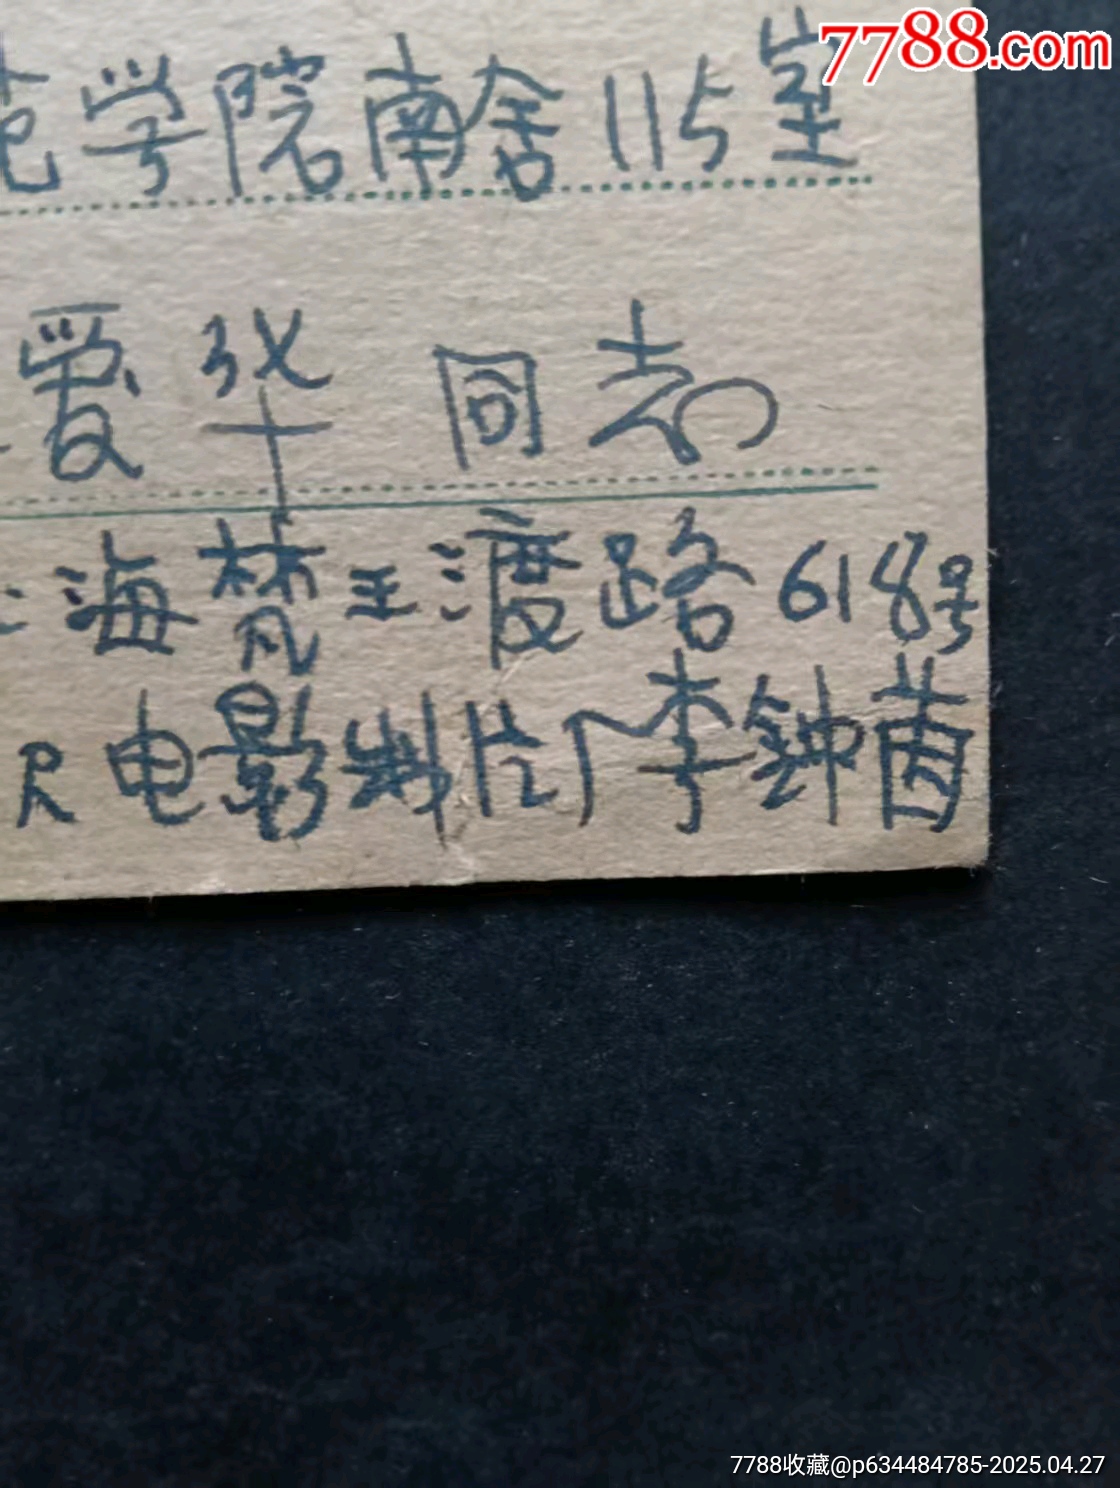 7788.com
学院南舍115室
爱华 同志
海梵王渡路618号
电影制片厂李钟茵
7788收藏@p634484785-2025.04.27